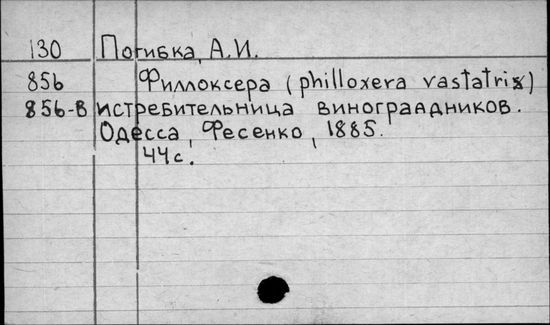 130 Погибка, А.И.
856 Филлоксера (philloxera vastatrix)
856-В истребительница виноградников.
Одесса, Фесенко, 1885.
44с.